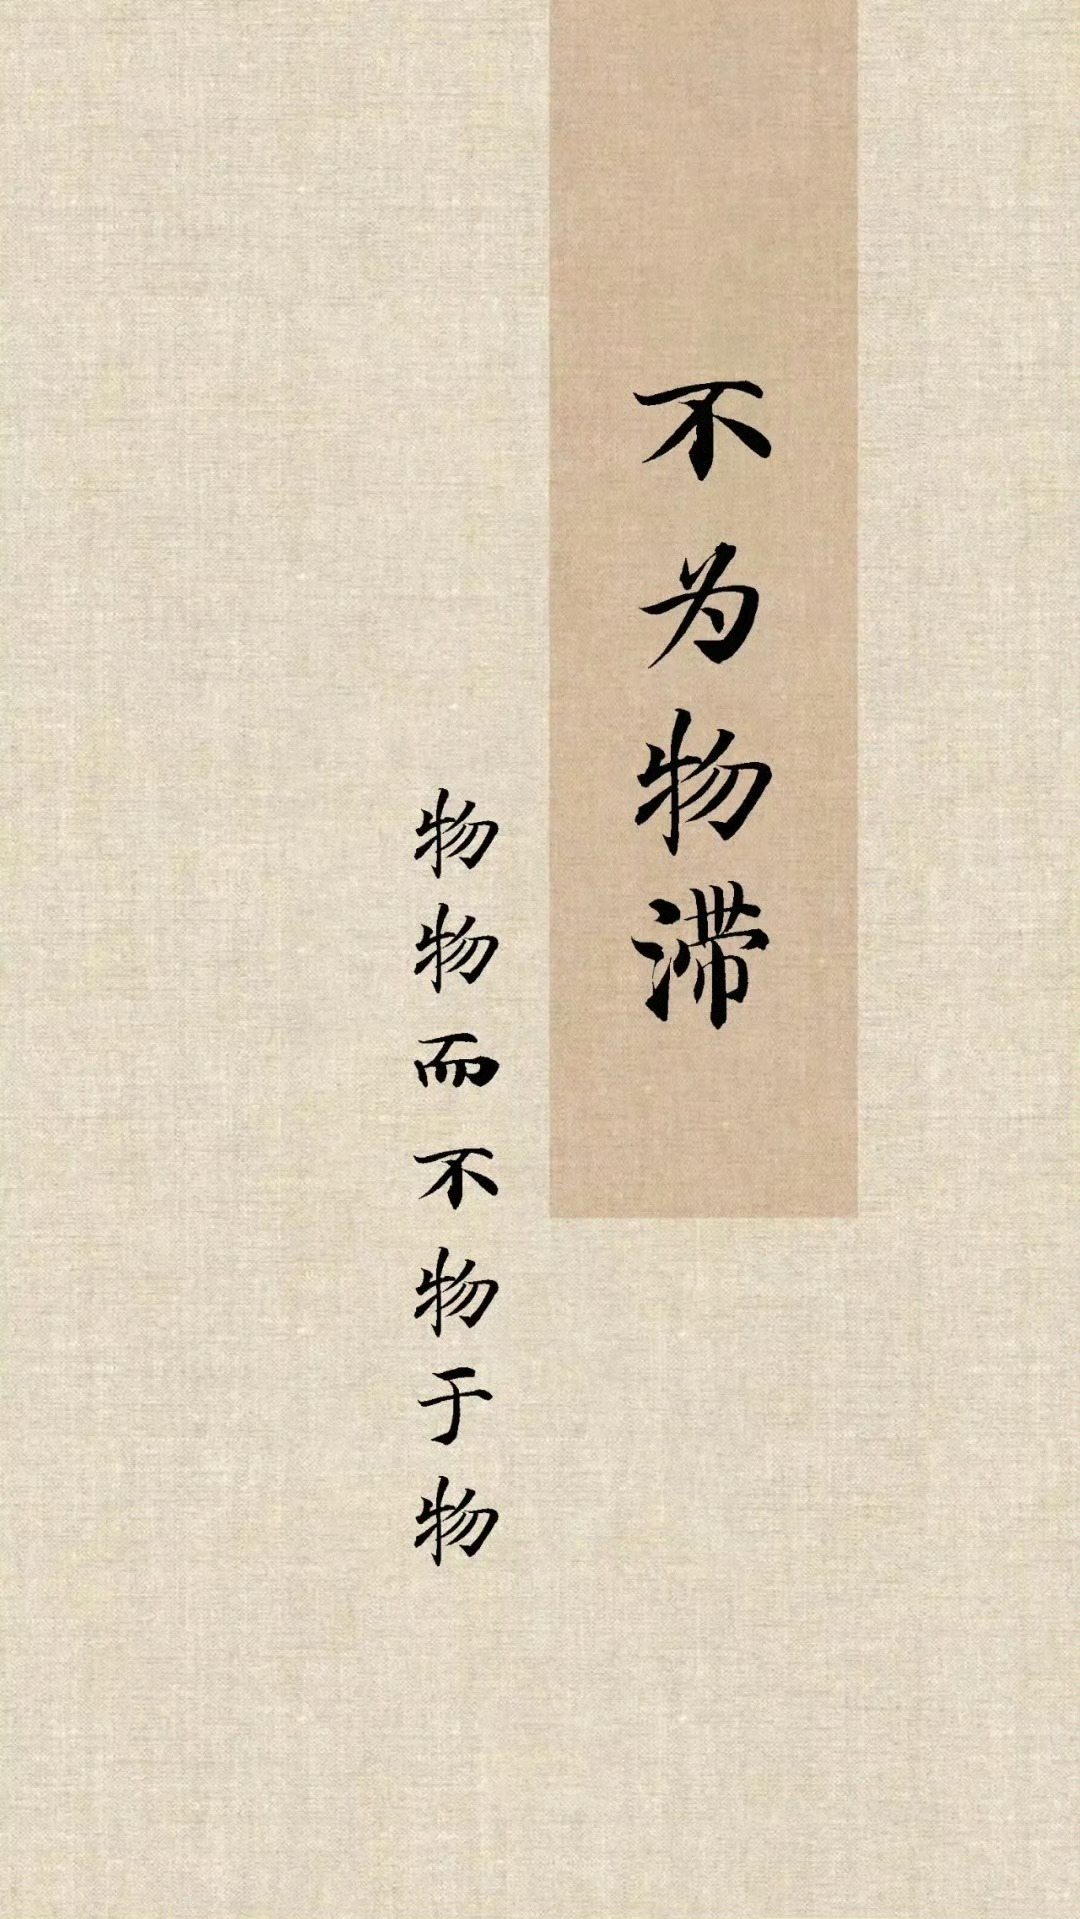 不为物滞
物物而不物于物